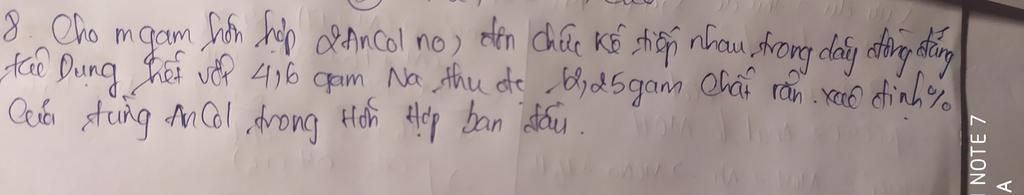 8. Cho m gam hỗn hợp 2 AnCol no, đơn chức kế tiếp nhau trong dãy đồng đẳng
tác Dụng hết với 4,6 gam Na thu đc 12,25 gam chất rắn. xác định %
Của từng AnCol trong Hỗn Hợp ban đầu.
NOTE 7
A